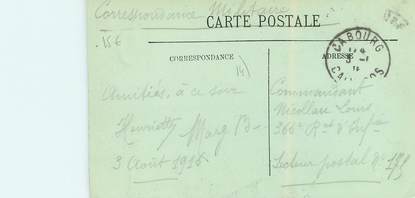 Correspondance Militaire
CARTE POSTALE
15€
CORRESPONDANCE
ADRESSE
CABOURG
14
Amitiés, à ce soir
Henriette Marg B-
3 Août 1915
Commandant
Nicollau Louis
366e Rt d'Inf
Secteur postal N°